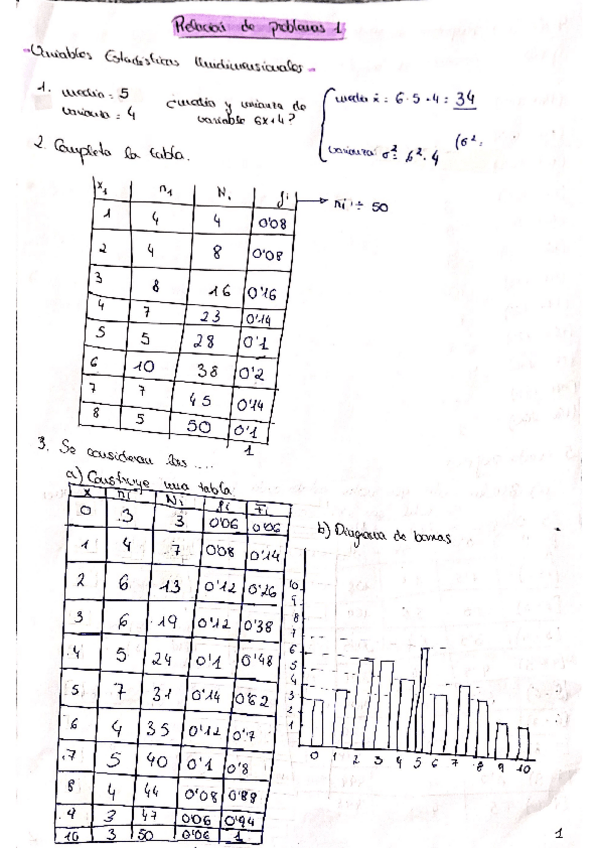 Relación de problemas 1
- Variables Estadísticas Unidimensionales -
1. media = 5
varianza = 4
¿media y varianza de
variable 6x+4?
media x̄ = 6·5+4 = 34
varianza σ² = 6²·4
(σ² =
2. Completa la tabla.
x₁ n₁ Nᵢ fᵢ → nᵢ ÷ 50
1 4 4 0'08
2 4 8 0'08
3 8 16 0'16
4 7 23 0'14
5 5 28 0'1
6 10 38 0'2
7 7 45 0'14
8 5 50 0'1
1
3. Se consideran las ....
a) Construye una tabla
x nᵢ Nᵢ fᵢ Fᵢ
0 3 3 0'06 0'06
1 4 7 0'08 0'14
2 6 13 0'12 0'26
3 6 19 0'12 0'38
4 5 24 0'1 0'48
5 7 31 0'14 0'62
6 4 35 0'12 0'7
7 5 40 0'1 0'8
8 4 44 0'08 0'88
9 3 47 0'06 0'94
10 3 50 0'06 1
b) Diagrama de barras
10
9
8
7
6
5
4
3
2
1
0 1 2 3 4 5 6 7 8 9 10
1